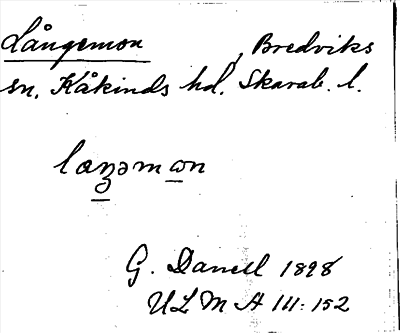 Långemon, Bredviks
sn. Kåkinds hd. Skarab. l.
laŋəmɷn
G. Danell 1898
ULMA 111:152